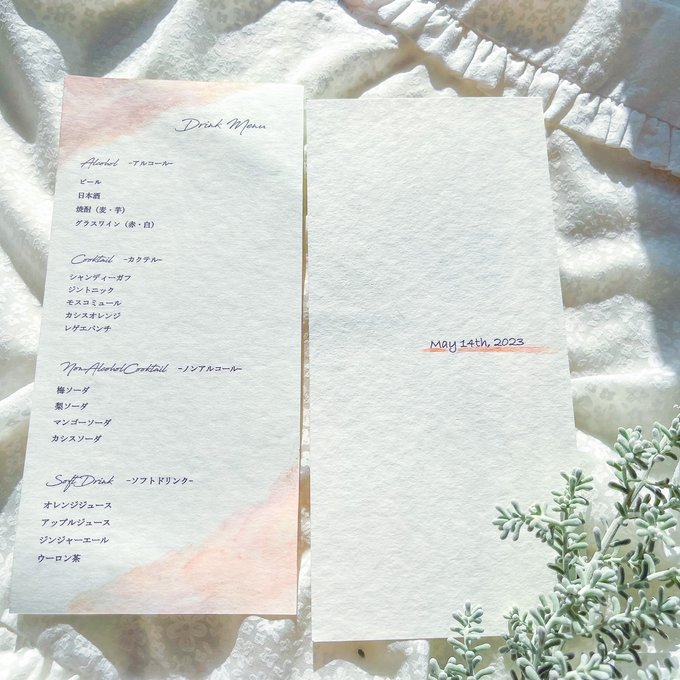 Drink Menu
Alcohol -アルコール-
ビール
日本酒
焼酎（麦・芋）
グラスワイン（赤・白）
Cocktail -カクテル-
シャンディーガフ
ジントニック
モスコミュール
カシスオレンジ
レゲエパンチ
Non Alcohol Cocktail -ノンアルコール-
梅ソーダ
梨ソーダ
マンゴーソーダ
カシスソーダ
Soft Drink -ソフトドリンク-
オレンジジュース
アップルジュース
ジンジャーエール
ウーロン茶
May 14th, 2023